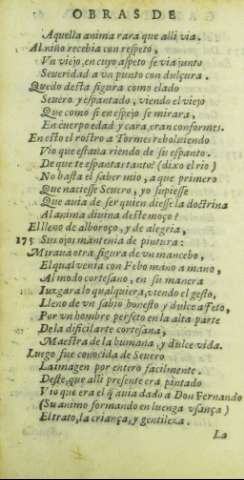 OBRAS DE
Aquella anima rara que alli via,
Al niño recebia con respeto,
Vn viejo, en cuyo aspeto se via junto
Seueridad a vn punto con dulçura.
Quedo desta figura como elado
Seuero y espantado, viendo el viejo
Que como si en espejo se mirara,
En cuerpo edad y cara, eran conformes.
En esto el rostro a Tormes reboluiendo
Vio que estaua riendo de su espanto.
De que te espantas tanto? (dixo el rio)
No basta el saber mio, a que primero
Que naciesse Seuero, yo supiesse
Que auia de ser quien diesse la doctrina
Al anima diuina deste moço?
El lleno de alboroço, y de alegria,
175 Sus ojos mantenia de pintura:
Miraua otra figura de vn mancebo,
El qual venia con Febo mano a mano,
Al modo cortesano, en su manera
Iuzgaralo qualquiera, viendo el gesto,
Lleno de vn sabio honesto y dulce afeto,
Por vn hombre perfeto en la alta parte
De la dificil arte cortesana,
Maestra de la humana, y dulce vida.
Luego fue conocida de Seuero
La imagen por entero facilmente.
Deste, que alli presente era pintado
Vio que era el q̃ auia dado a Don Fernando
(Su animo formando en luenga vsança)
El trato, la criança, y gentileza.
La